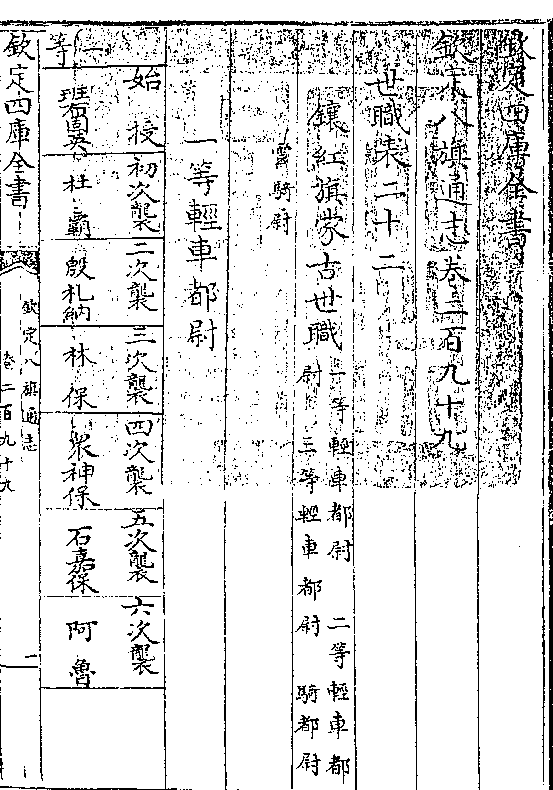 欽定四庫全書
欽定八旗通志卷二百九十九
世職表二十二
鑲紅旗蒙古世職 一等輕車都尉 二等輕車都
尉 三等輕車都尉 騎都尉
雲騎尉
一等輕車都尉
始授 初次襲 二次襲 三次襲 四次襲 五次襲 六次襲
杜霸 殷札納 林保 衆神保 石嘉保 阿魯
一等
欽定四庫全書
欽定八旗通志
卷二百九十九
一